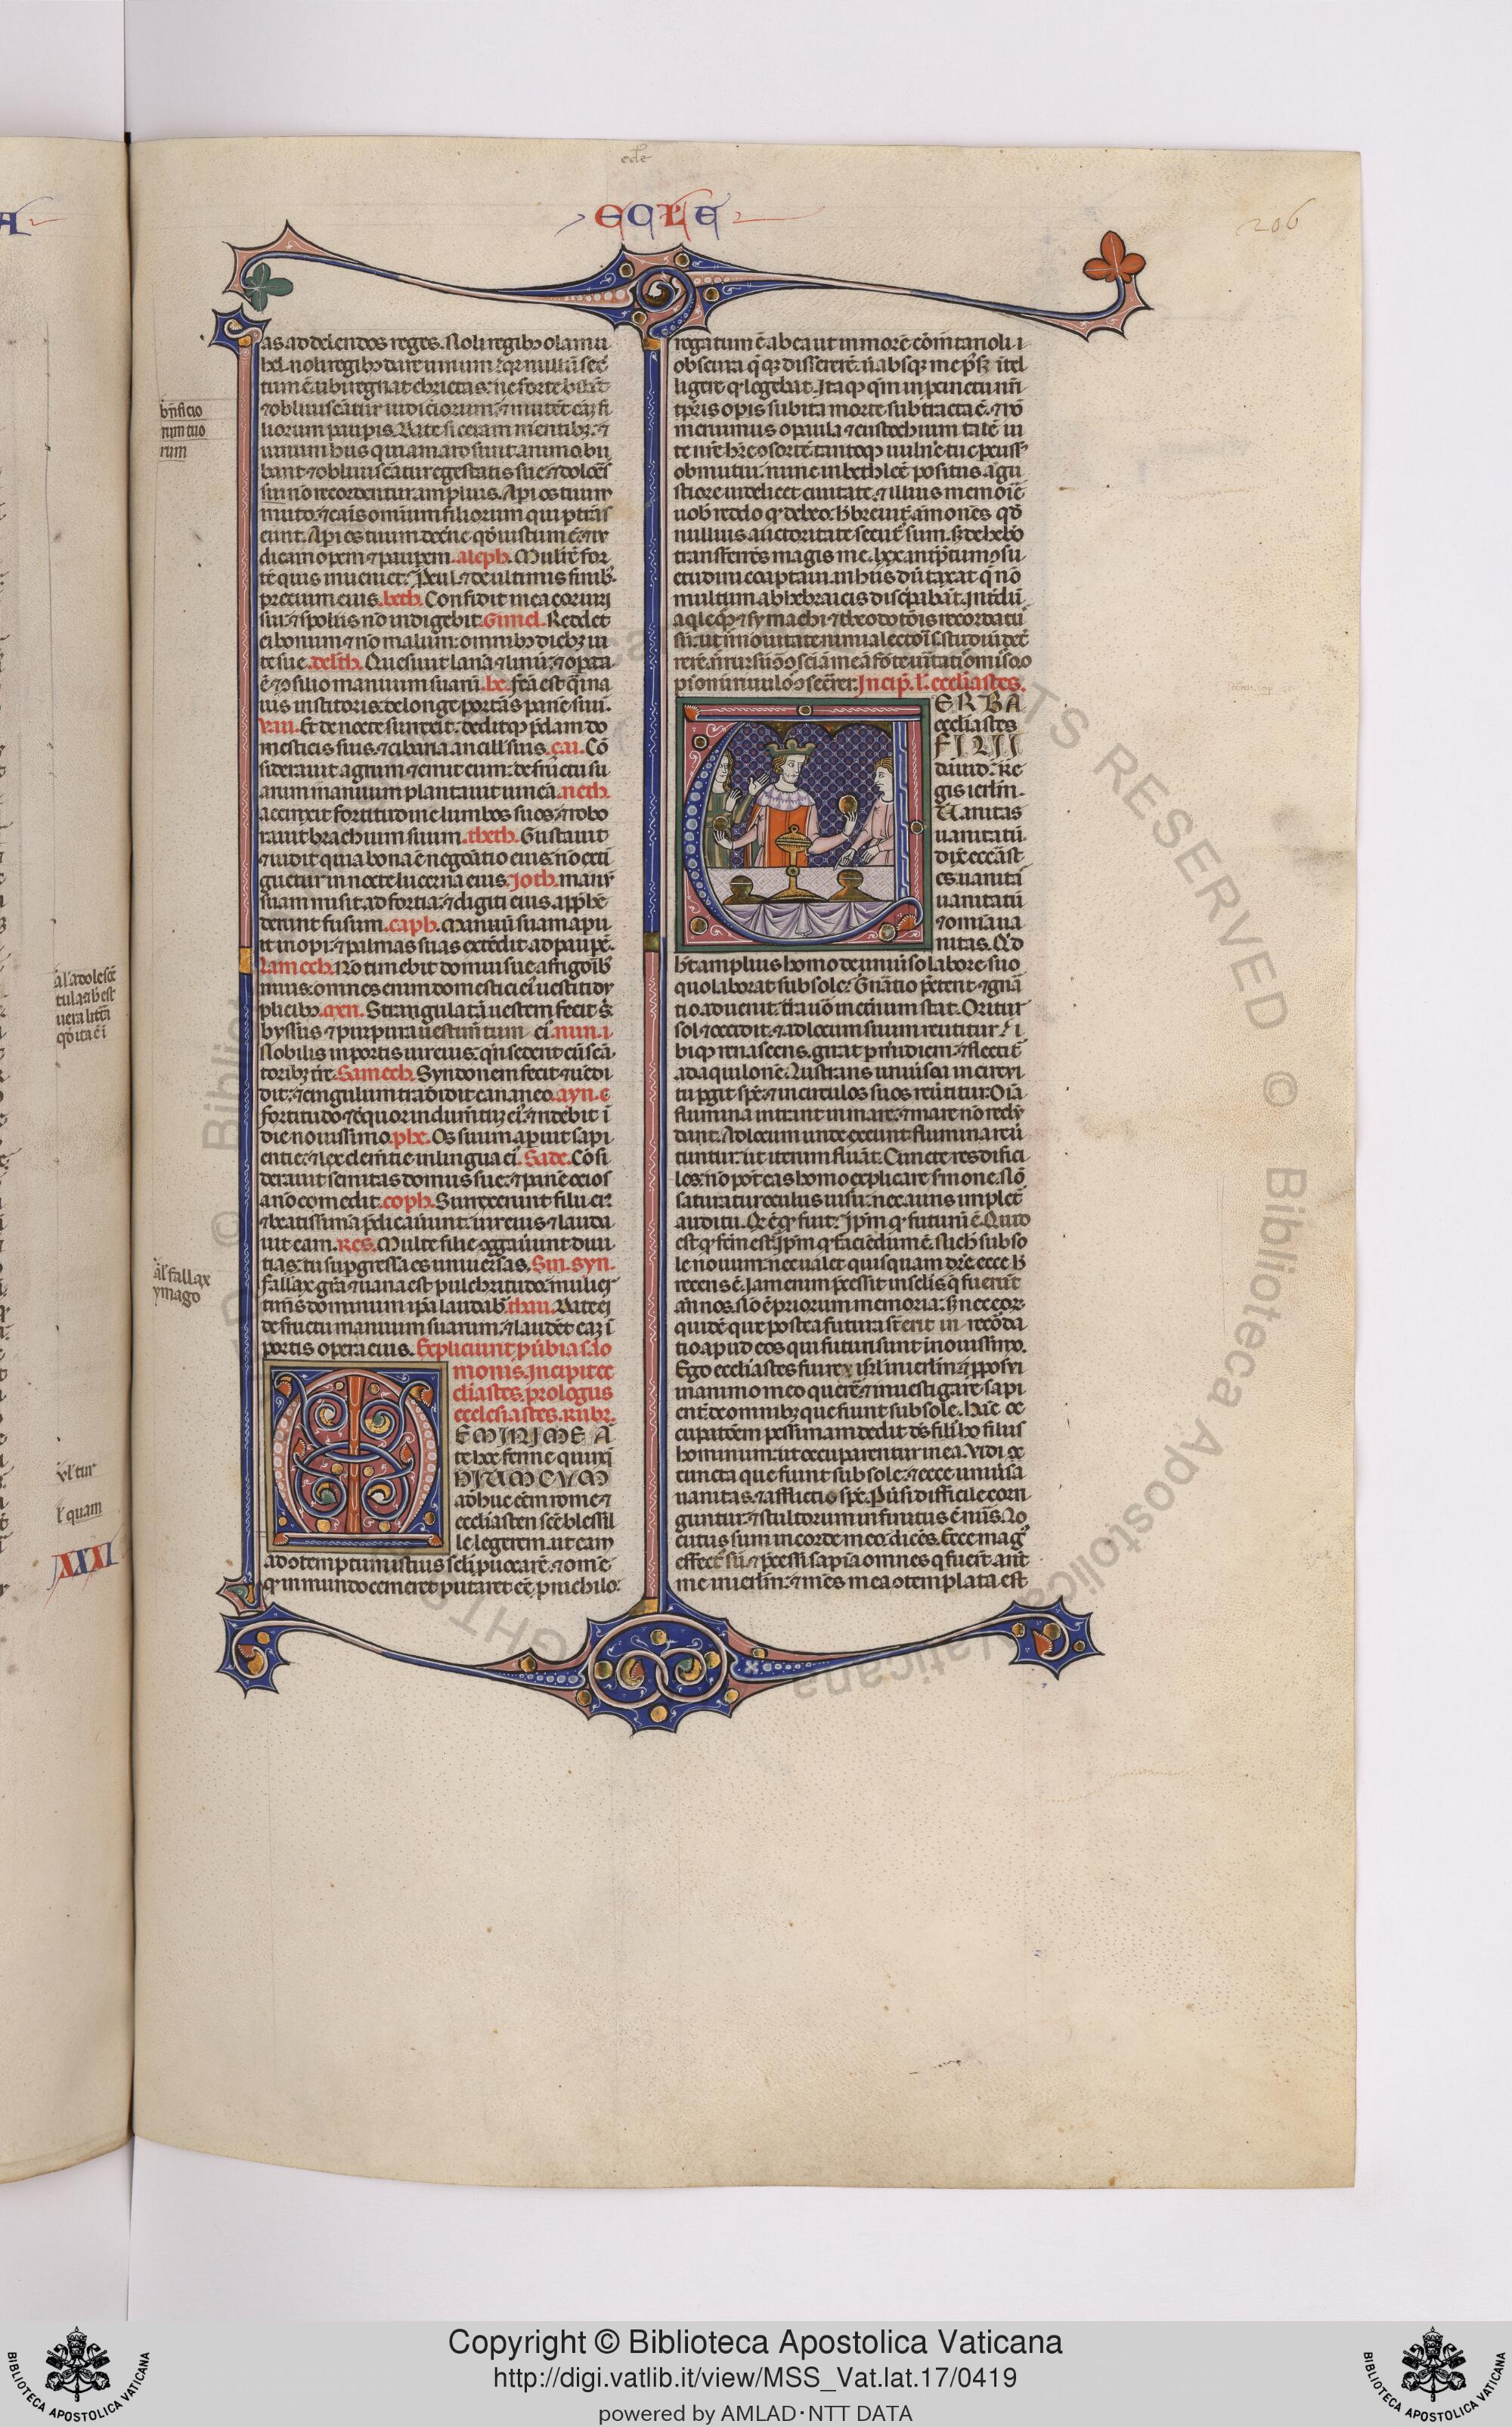 ecle
ECLE
206
as ad delendos reges. Noli regibꝫ o lamu
hel. noli regibꝫ dare uinum: qꝛ nullū secͤ
tum ē ubi regnat ebrietas: ne forte bibāt
⁊ obliuiscātur iudiciorum: ⁊ mutēt cāꝫ fi
liorum paupis. Date siceram mentibꝫ. ⁊
uinum his qui amaro sunt animo. bi
bant ⁊ obliuiscātur egestatis sue: ⁊ doloꝝ
sui nō recordentur amplius. Api os tuum
muto. ⁊ cāis omnium filiorum qui ptrās
eunt. Api os tuum decerne qđ iustum ē. ⁊ iu
dica inopem ⁊ pauperem. aleph. Mulierē for
tē quis inueniet? Pcul ⁊ de ultimis finibꝫ
precium eius. beth. Confidit in ea cor uiri
sui: ⁊ spoliis nō indigebit. Gimel. Reddet
ei bonum ⁊ nō malum: omnibꝫ diebꝫ ui
te sue. deleth. Quesiuit lanā ⁊ linū: ⁊ opata
ē ꝯsilio manuum suarū. he. fcā est q̄si na
uis institoris: de longe portās panē suū.
Vau. Et de nocte surrexit: deditqꝫ pdam do
mesticis suis. ⁊ cibaria ancillis suis. çai. Cō
siderauit agrum ⁊ emit eum: de fructu su
arum manuum plantauit uineā. heth.
accinxit fortitudine lumbos suos: ⁊ robo
rauit brachium suum. theth. Gustauit
⁊ uidit quia bona ē negociatio eius: nō exti
guetur in nocte lucerna eius. Joth. manū
suam misit ad fortia: ⁊ digiti eius apphē
derunt fusum. caph. manum suam apu
it inopi: ⁊ palmas suas extēdit ad paupē.
Lamech. Nō timebit domui sue a frigoribꝫ
niuis: omnes enim domestici ei uestiti du
plicibꝫ. Strangulatā uestem fecit s̄:
byssus ⁊ purpura uestimētum ei. nun. i
Nobilis in portis uir eius: qn̄ sederit cū senā
toribꝫ tre. Samech. Syndonem fecit ⁊ uēdi
dit: ⁊ cingulum tradidit cananeo. ayn. e
fortitudo ⁊ decor indumētū ei: ⁊ ridebit ī
die nouissimo. phe. Os suum apuit sapi
entie: ⁊ lex clemtie in lingua ei. Sade. Cōsi
derauit semitas domus sue: ⁊ panē ocios
a nō comedit. coph. Surrexerunt filii ei
⁊ beatissimā pdicauerunt: uir eius ⁊ lauda
uit eam. Res. Multe filie ꝯgͣuerunt diui
tias: tu supgressa es uniuersas. Sin. syn.
fallax grā ⁊ uana est pulchritudo: mulier
timēs dominum ipa laudabꝛ. thau. Date ei
de fructu manuum suarum: ⁊ laudēt eaꝫ ī
portis opera eius. Expliciunt puͥbia salo
monis. Incipit ec
cliastes. prologus
ecclesiastes. Rubr.
EMINI ME A
te hoc ferme quinqͣ
NIUM CUM
adhuc eēm rome ⁊
eccliasten scē blesil
le legerem. ut eam
ad ꝯtemptum istius scli puocarē. ⁊ omē
qđ in mundo cerneret putaret eē pro nichilo:
rogatum ē ab ea ut in morē cōmtarioli i
obscura queqꝫ dissererē. ut absqꝫ me posꝫ ītel
ligere qđ legebat. Itaqꝫ qm̄ in pcinctu nri
opis subita morte subtracta ē. ⁊ nō
meruimus o paula ⁊ eustochium talē ui
te nr̄e habere ꝯsortē. tantoqꝫ uulnere tūc pcussꝰ
obmutui: nunc in bethleē positus augu
stiore uidelicet ciuitate: ⁊ illius memorie ⁊
uobis reddo qđ debeo. hoc breuiter ammonēs qđ
nullius auctoritatē secutꝰ sum. sꝫ de hebreo
transferēs magis me lxx. intptum ꝯsu
etudini coaptaui. in his dūtaxat q̄ nō
multum ab hebraicis discrepabāt. Intdū
aqle qꝫ ⁊ symachi ⁊ theodotōis recordatꝰ
sū: ut nec nouitate nimia lectoris studiū deter
rerē. nec rursū ꝯtra ꝯsciam meā fonte ueritatis omisso o
pionū riuulos ꝯsecrer. Incip. l. eccliastes.
ERBA
eccliastes
FILII
dauid: Re
gis ierlm.
Vanitas
uanitatū
dix eccāst
es: uanita
uanitatū
⁊ omia ua
nitas. Qͥd
ht amplius homo de uniuso labore suo
quo laborat sub sole? Gn̄atio pterit ⁊ gnā
tio aduenit. tͣra uō in eternum stat. Oritur
sol ⁊ occidit. ⁊ ad locum suum reutitur: i
biqꝫ renascens. girat p meridiem: ⁊ flectit
ad aquilonē. Lustrans uniusa in circui
tu pgit sps: ⁊ in circulos suos reuertitur. Oia
flumina intrant in mare: ⁊ mare nō redū
dant. Ad locum unde exeunt flumina reu
tuntur: ut iterum fluāt. Cuncte res difici
les: nō potest eas homo explicare sermone. Nō
saturatur oculus uisu: nec auris implet
auditu. Qđ ē qđ fuit? Ipm qđ futurū ē. Quid
est qđ fcm est? Ipm qđ faciēdum ē. Nichil sub so
le nouum: nec ualet quisquam dicere ecce hͦ
recens ē. Iam enim pcessit in sclis q̄ fuerūt
an̄ nos. Nō ē priorum memoria: sꝫ nec eor
quidē que postea futura st̄ erit in recorda
tio apud eos qui futuri sunt in nouissimo.
Ego eccliastes fui rex isrl in ierlm ⁊ pposui
in animo meo querere ⁊ inuestigare sapi
enter de omnibꝫ que fiunt sub sole. Hāc oc
cupatōem pessimam dedit ds filiis hoīm
hominum: ut occuparentur in ea. Vidi
cuncta que fiunt sub sole. ⁊ ecce uniusa
uanitas ⁊ afflictio sps. Pūsi difficile corri
guntur: ⁊ stultorum infinitus ē nūs. Lo
cutus sum in corde meo dicēs. Ecce magꝰ
effectꝰ sū: ⁊ pcessi sapia omnes q̄ fuerūt ante
me in ierlm: ⁊ mens mea ꝯtemplata est
b̄nficio
rum tuo
rum
al' adolescē
uera litta
al' fallax
ymago
vl' tur
l' quam
XXXI
Copyright © Biblioteca Apostolica Vaticana
http://digi.vatlib.it/view/MSS_Vat.lat.17/0419
powered by AMLAD·NTT DATA
BIBLIOTECA APOSTOLICA VATICANA
BIBLIOTECA APOSTOLICA VATICANA